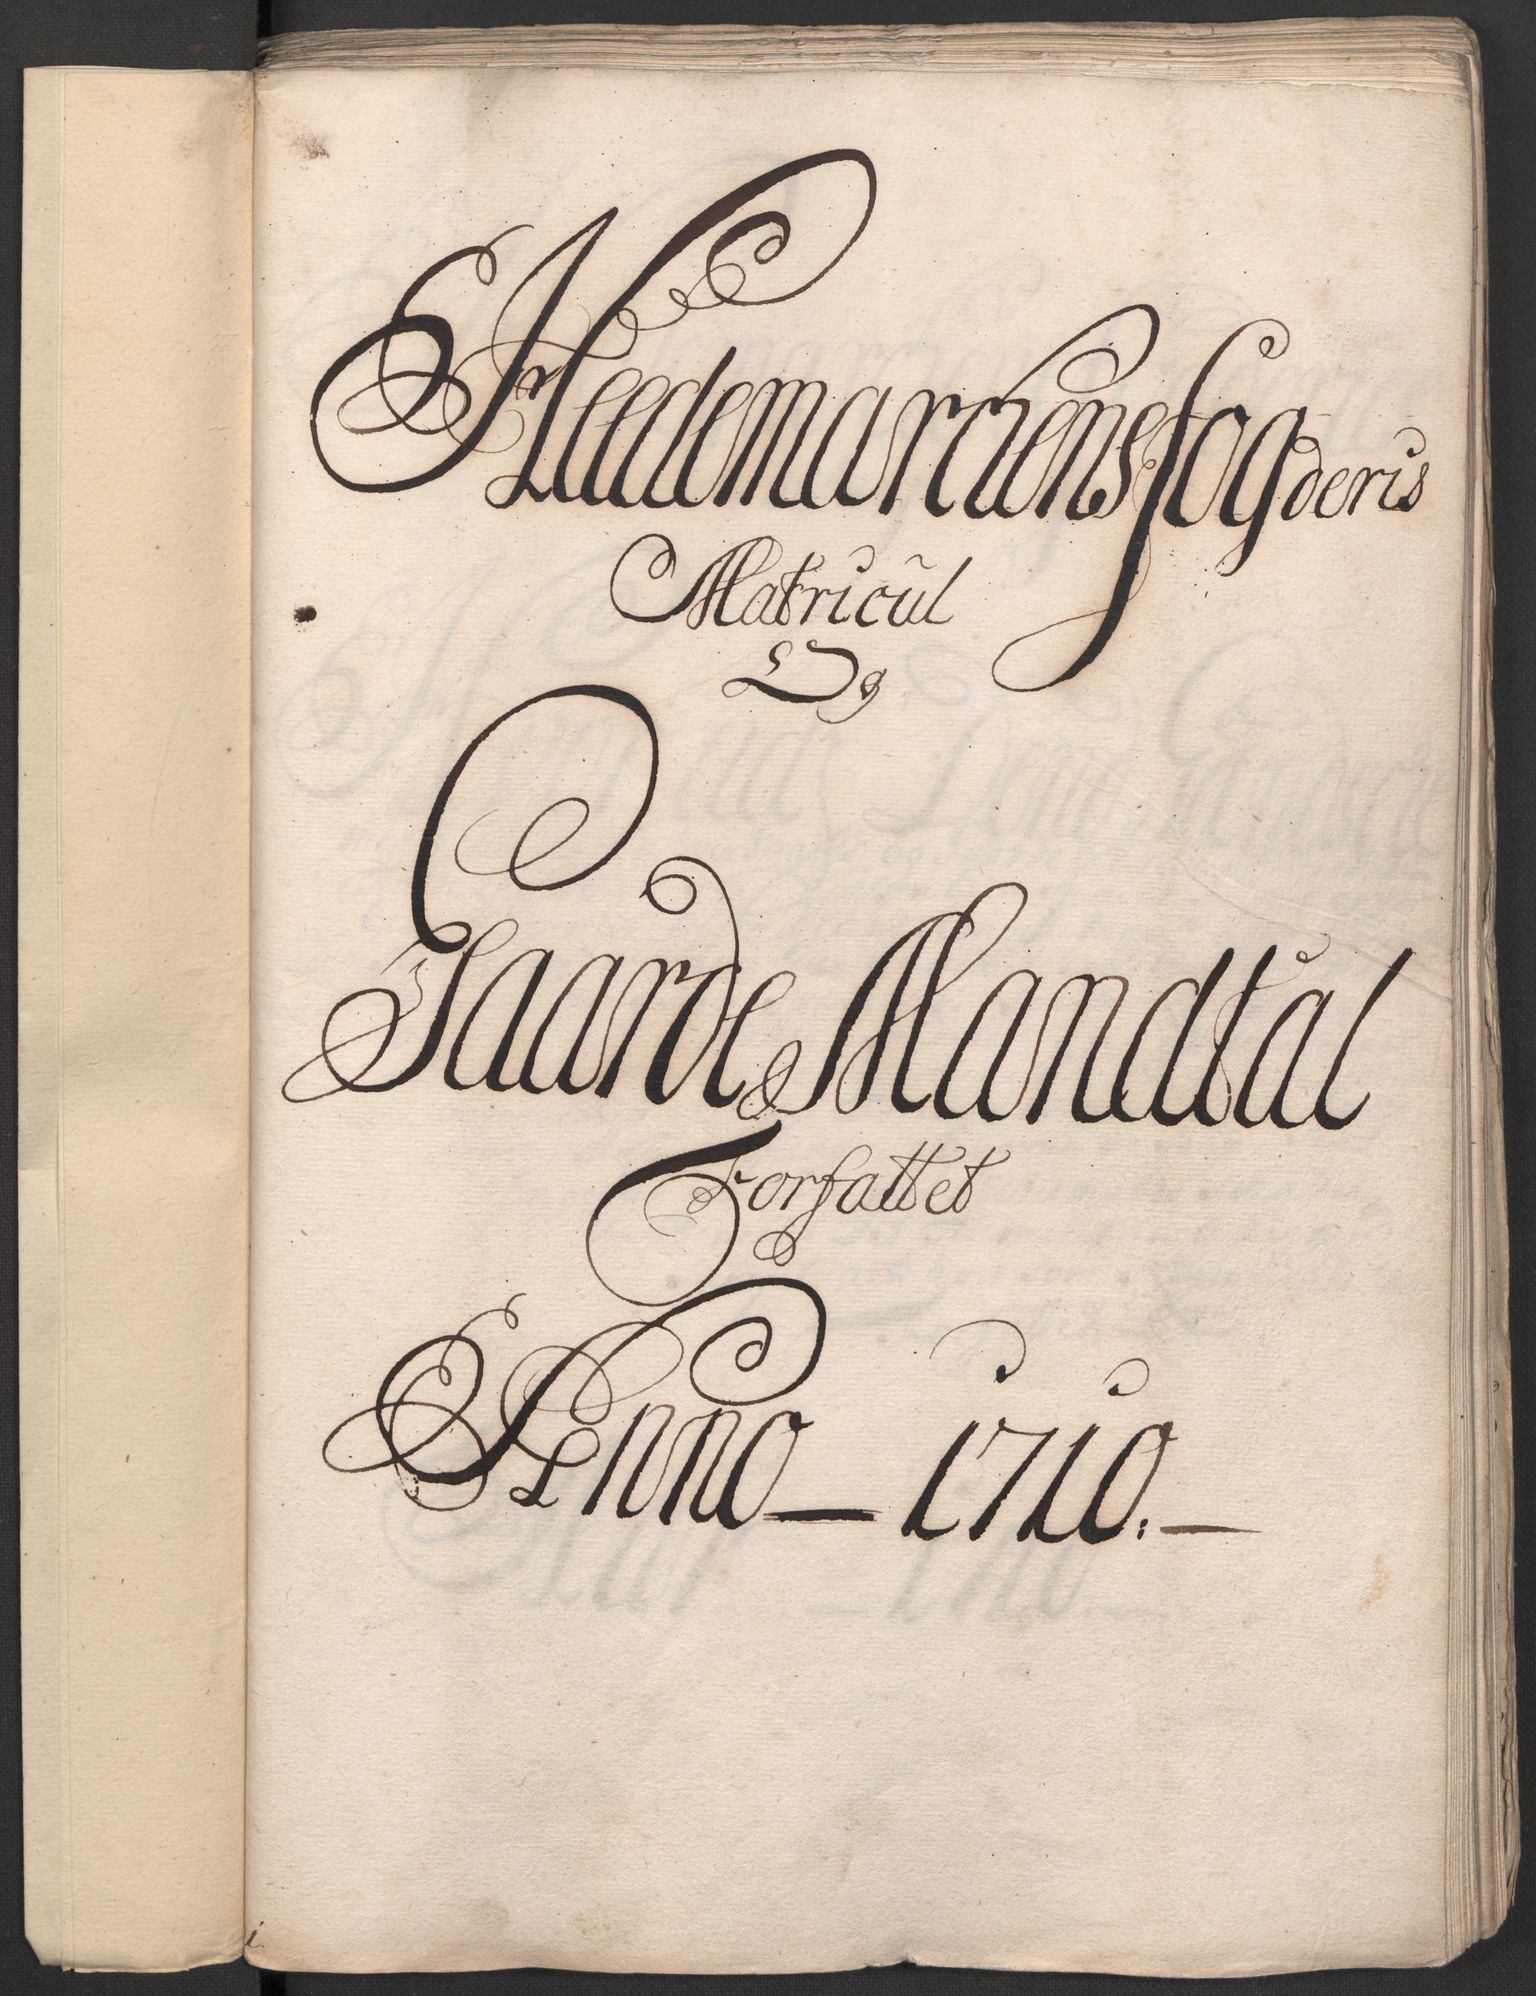 Heedemarciens fogderis
Matricul
Og
Gaarde Mandtal
Forfattet
Anno — 1710. —